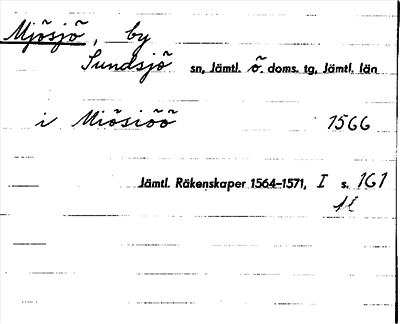 Mjösjö, by
Sundsjö sn, Jämtl. ö. doms. tg, Jämtl. län
i Miösiöö 1566
Jämtl. Räkenskaper 1564–1571, I s. 161